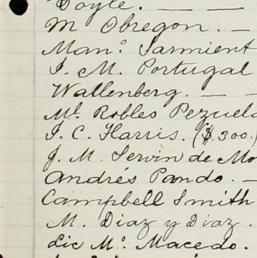 Doyle. — —
M Obregon. — —
Man.º Sarmient
I. M. Portugal
Wallenberg. — —
Ml. Robles Pezuela
I. C. Harris. ($300.)
J. M. Servin de Mo
Andrés Pando. —
Campbell Smith
M. Diaz y Diaz.
Lic M.º Macedo.